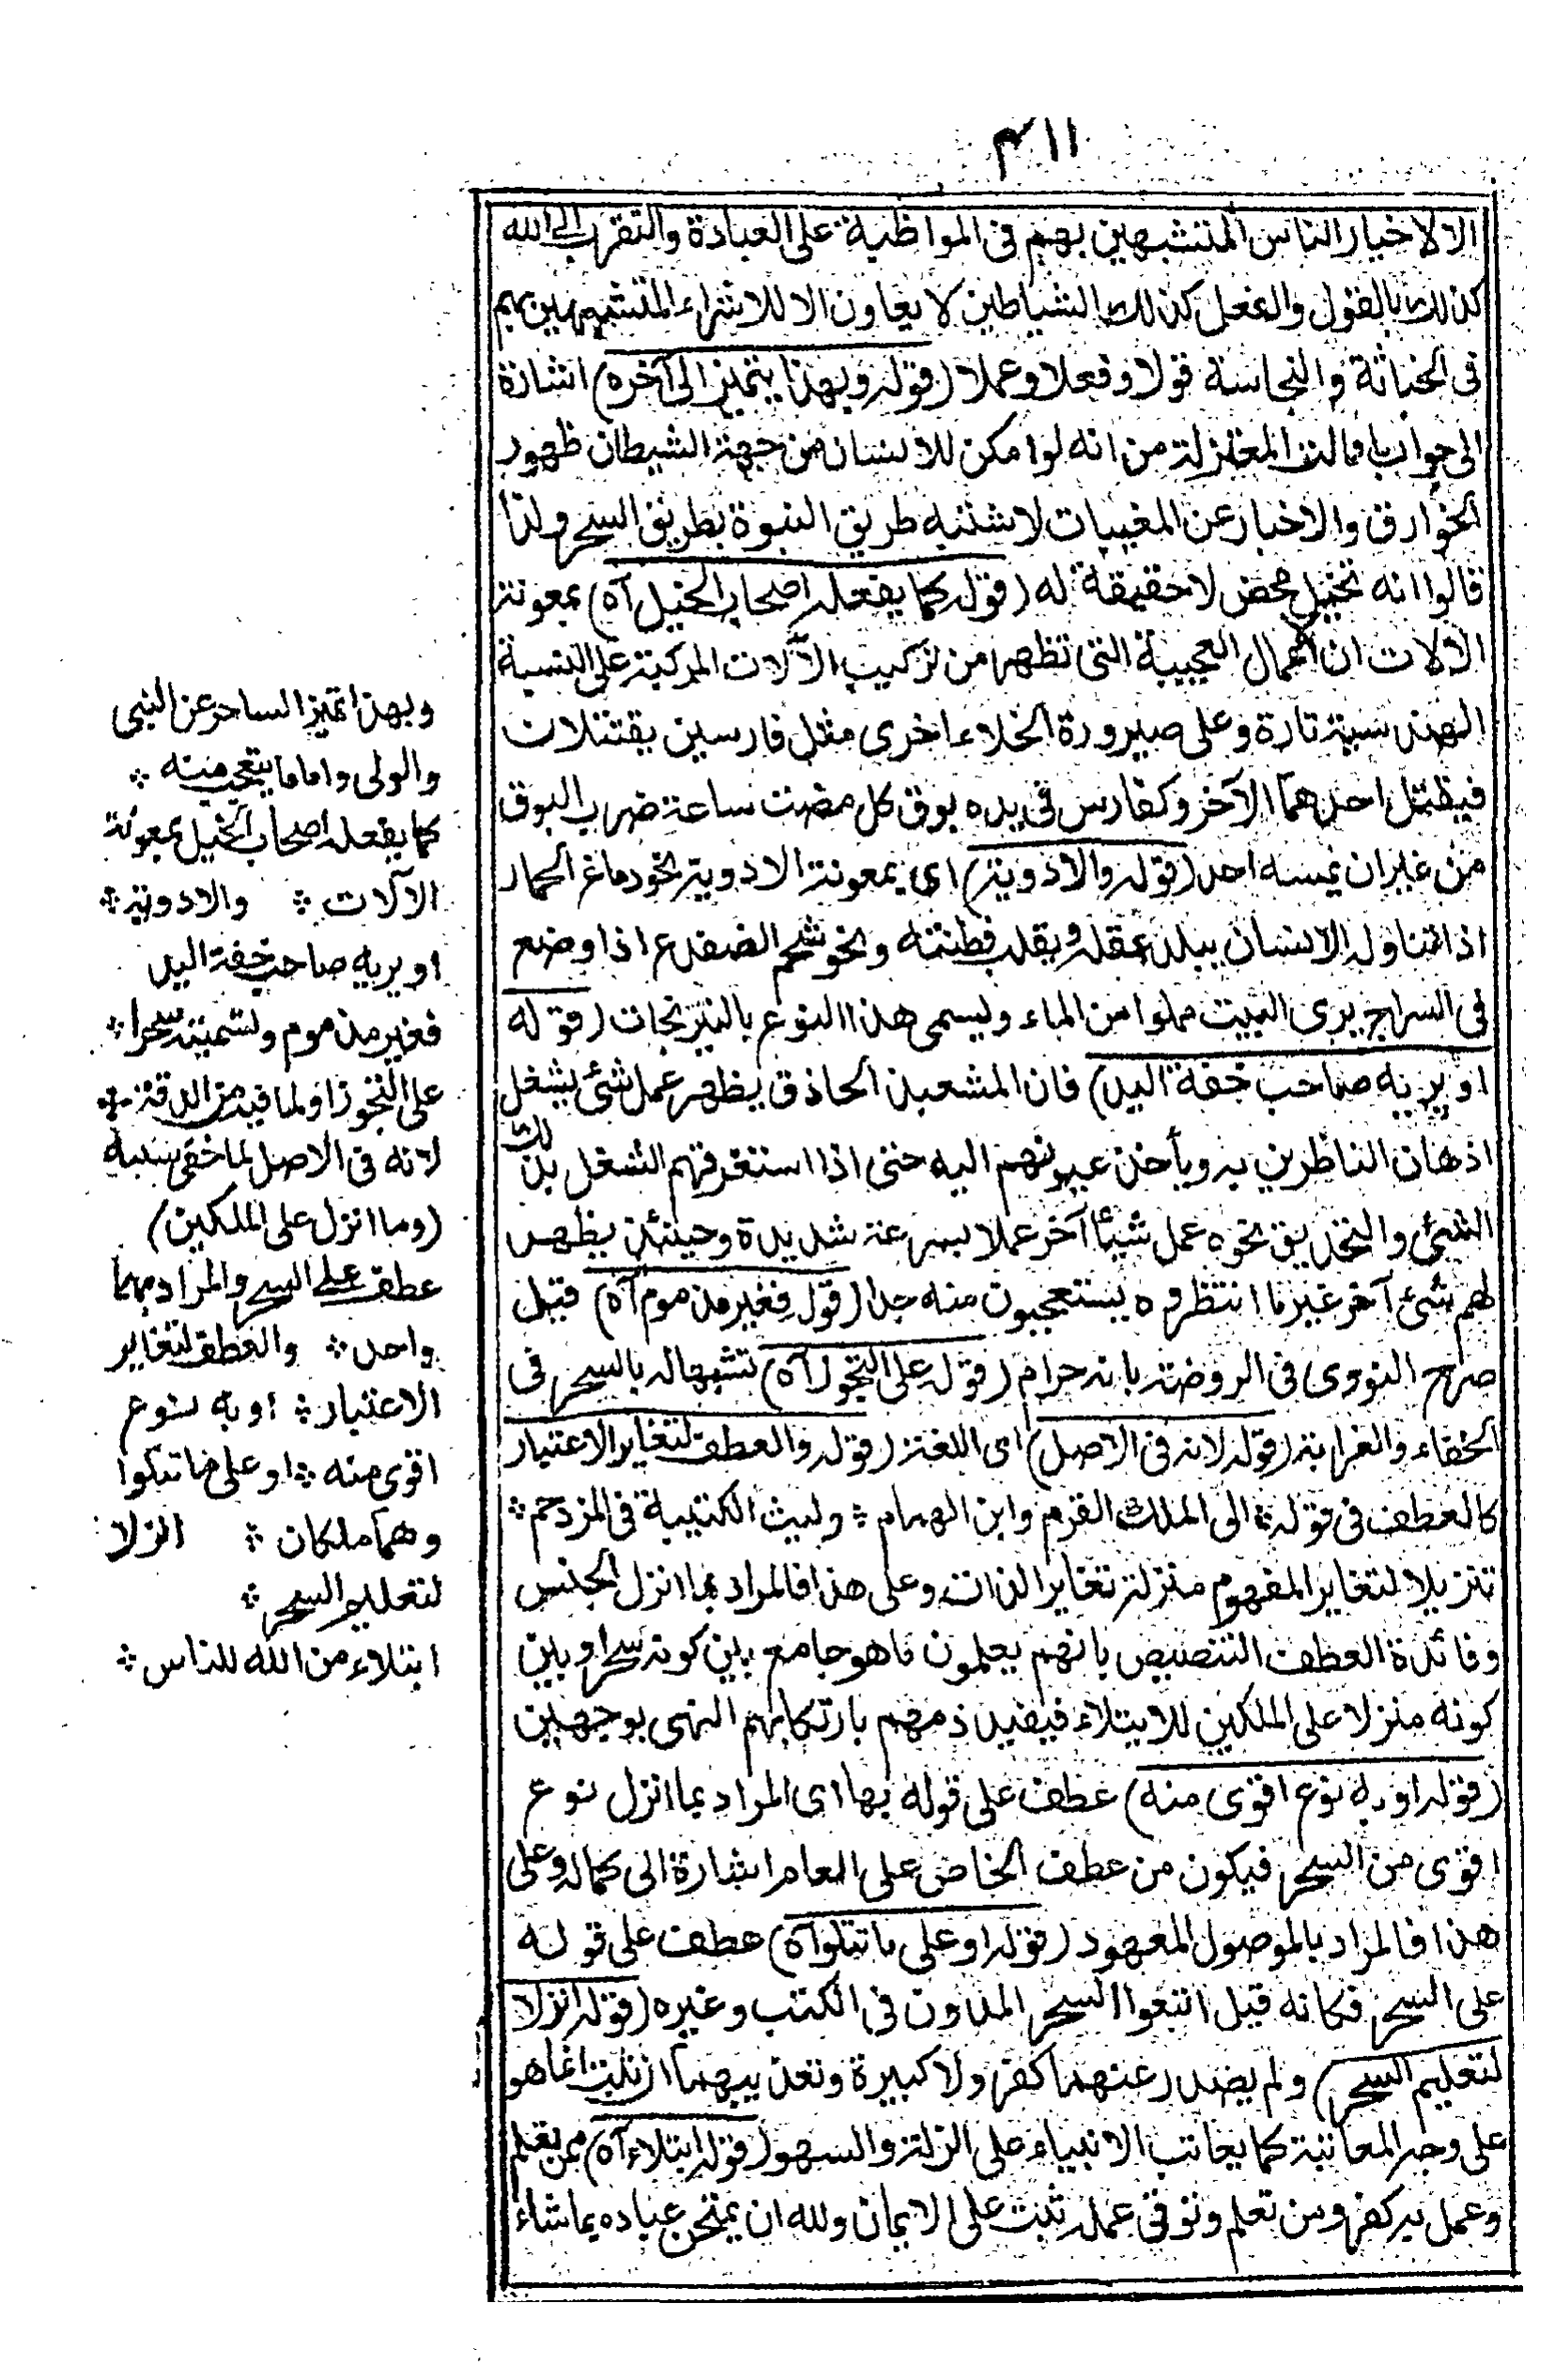 ۴۱۱
الا لاخيار الناس المتشبهين بهم فى المواظبة على العبادة والتقرب الى الله
كذلك بالقول والفعل كذلك الشياطين لا يعاون الا للاشراء المتشبهين بهم
فى الخباثة والنجاسة قولا وفعلا وعملا (قوله وبهذا يتميز الى آخره) اشارة
الى جواب ما قالت المعتزلة من انه لو امكن للانسان من جهة الشيطان ظهور
الخوارق والاخبار عن المغيبات لاشتبه طريق النبوة بطريق السحر ولذا
قالوا انه تخييل محض لا حقيقة له (قوله كما يفعله اصحاب الحيل آه) بمعونة
الالات ان الاعمال العجيبة التى تظهر من تركيب الآلات المركبة على النسبة
الهندسية تارة وعلى صيرورة الخلاء اخرى مثل فارسين يقتتلان
فيقتل احدهما الآخر وكفارس فى يده بوق كل مضت ساعة ضرب البوق
من غير ان يمسه احد (قوله والادوية) اى بمعونة الادوية نحو دماغ الحمار
اذا تناوله الانسان يبلد عقله ويقلب فطنته ونحو شحم الضفدع اذا وضع
فى السراج يرى البيت مملوا من الماء ويسمى هذا النوع بالنيرنجات (قوله
او يريه صاحب خفة اليد) فان المشعبذ الحاذق يظهر عمل شئ يشغل
اذهان الناظرين به ويأخذ عيونهم اليه حتى اذا استغرقهم الشغل بذلك
الشئ والتحديق نحوه عمل شيئا آخر عملا بسرعة شديدة وحينئذ يظهر
لهم شئ آخر غير ما انتظروه يستعجبون منه جدا (قوله فغير مذموم آه) قيل
صرح النووى فى الروضة بانه حرام (قوله على التجوز آه) تشبيها له بالسحر فى
الخفاء والغرابة (قوله لانه فى الاصل) اى اللغة (قوله والعطف لتغاير الاعتبار
كالعطف فى قوله ؞ الى الملك القرم وابن الهمام ؞ وليث الكتيبة فى المزدحم ؞
تنزيلا لتغاير المفهوم منزلة تغاير الذات وعلى هذا فالمراد بما انزل الجنس
وفائدة العطف التنصيص بانهم يعلمون ما هو جامع بين كونه سحرا وبين
كونه منزلا على الملكين للابتلاء فيفيد ذمهم بارتكابهم النهى بوجهين
(قوله او به نوع اقوى منه) عطف على قوله بها اى المراد بما انزل نوع
اقوى من السحر فيكون من عطف الخاص على العام اشارة الى كماله وعلى
هذا فالمراد بالموصول المعهود (قوله او على ما تتلوا آه) عطف على قوله
على السحر فكانه قيل اتبعوا السحر المدون فى الكتب وغيره (قوله انزلا
لتعليم السحر) ولم يصدر عنهما كفر ولا كبيرة وتعذيبهما ان ثبت انما هو
على وجه المعاتبة كما يعاتب الانبياء على الزلة والسهو (قوله ابتلاء آه) فمن تعلم
وعمل به كفر ومن تعلم وتوقى عمله ثبت على الايمان ولله ان يمتحن عباده بما شاء
وبهذا تميز الساحر عن النبى
والولى واما ما يتعجب منه ؞
كما يفعله اصحاب الحيل بمعونة
الآلات ؞ والادوية ؞
او يريه صاحب خفة اليد
فغير مذموم وتسميته سحرا ؞
على التجوز او لما فيه من الدقة ؞
لانه فى الاصل لما خفى سببه
(وما انزل على الملكين)
عطف على السحر والمراد بهما
واحد ؞ والعطف لتغاير
الاعتبار ؞ او به نوع
اقوى منه ؞ او على ما تتلوا
وهما ملكان ؞ انزلا
لتعليم السحر ؞
ابتلاء من الله للناس ؞